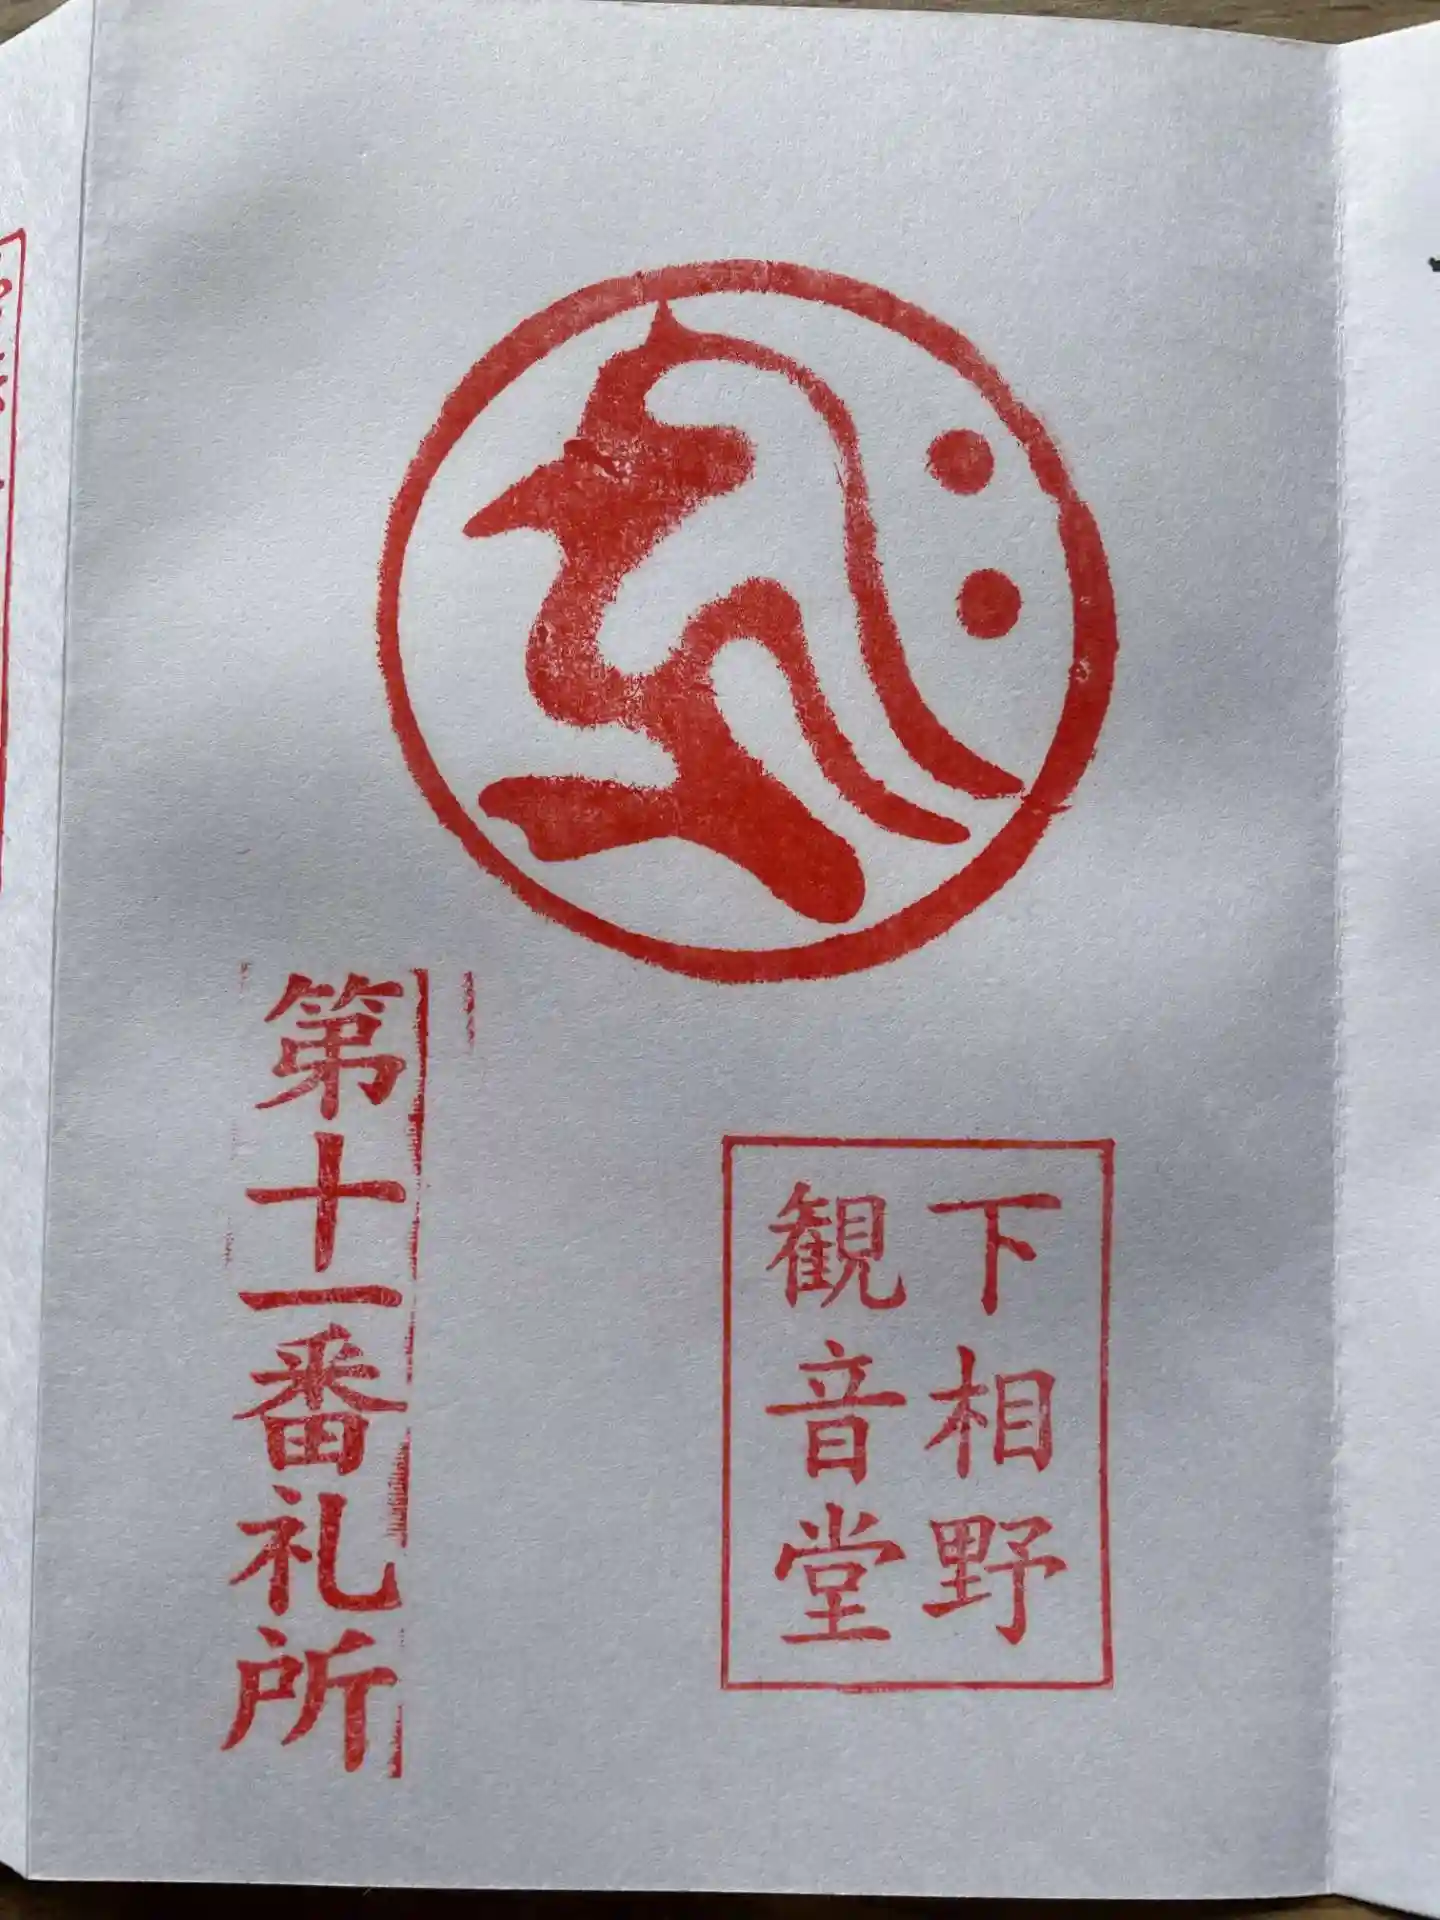 𑖮𑖿𑖨𑖱𑖾
下相野
観音堂
第十一番礼所